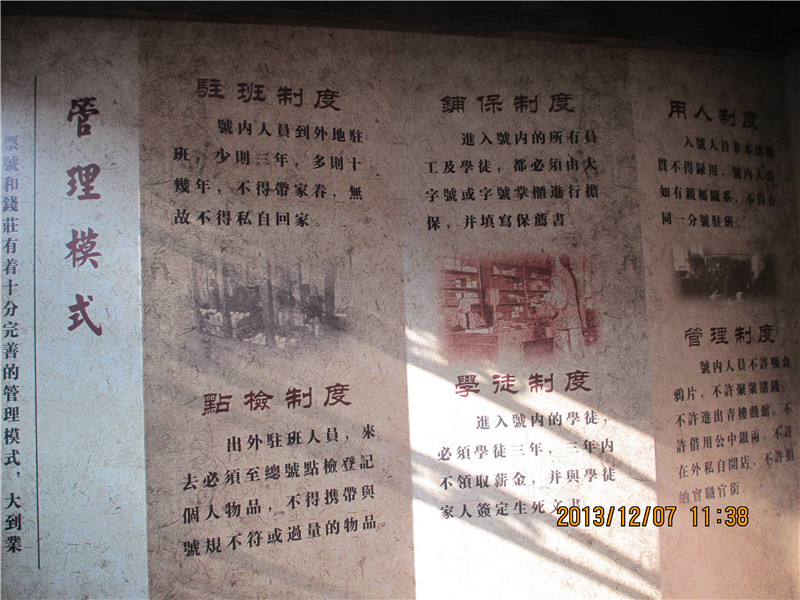 管理模式
票號和錢莊有着十分完善的管理模式，大到業
駐班制度
號内人員到外地駐
班，少則三年，多則十
幾年，不得帶家眷，無
故不得私自回家。
點檢制度
出外駐班人員，來
去必須至總號點檢登記
個人物品，不得携帶與
號規不符或過量的物品。
鋪保制度
進入號内的所有員
工及學徒，都必須由大
字號或字號掌櫃進行擔
保，并填寫保薦書。
學徒制度
進入號内的學徒，
必須學徒三年，三年内
不領取薪金，并與學徒
家人簽定生死文書
用人制度
入號人員非本地籍
貫不得録用，號内人員
如有親屬關系，不得在
同一分號駐班。
管理制度
號内人員不許吸食
鴉片，不許聚衆賭錢，
不許進出青樓戲館，不
許借用公中銀兩，不許
在外私自開店，不許捐
納實職官銜
2013/12/07 11:38